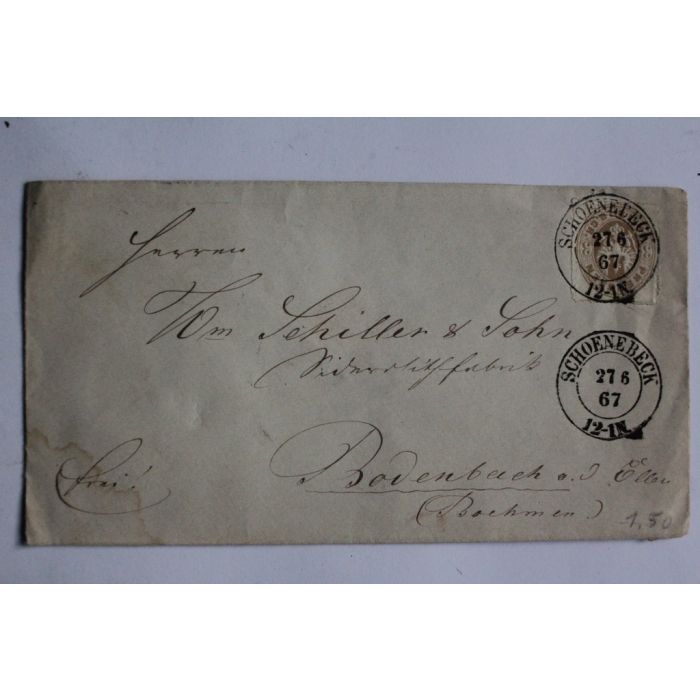 SCHOENEBECK
27 6
67
12-1N.
Herren
Wm Schiller & Sohn
Siderolithfabrik
SCHOENEBECK
27 6
67
12-1N.
frei!
Bodenbach a. d. Elbe
(Boehmen.)
1,50